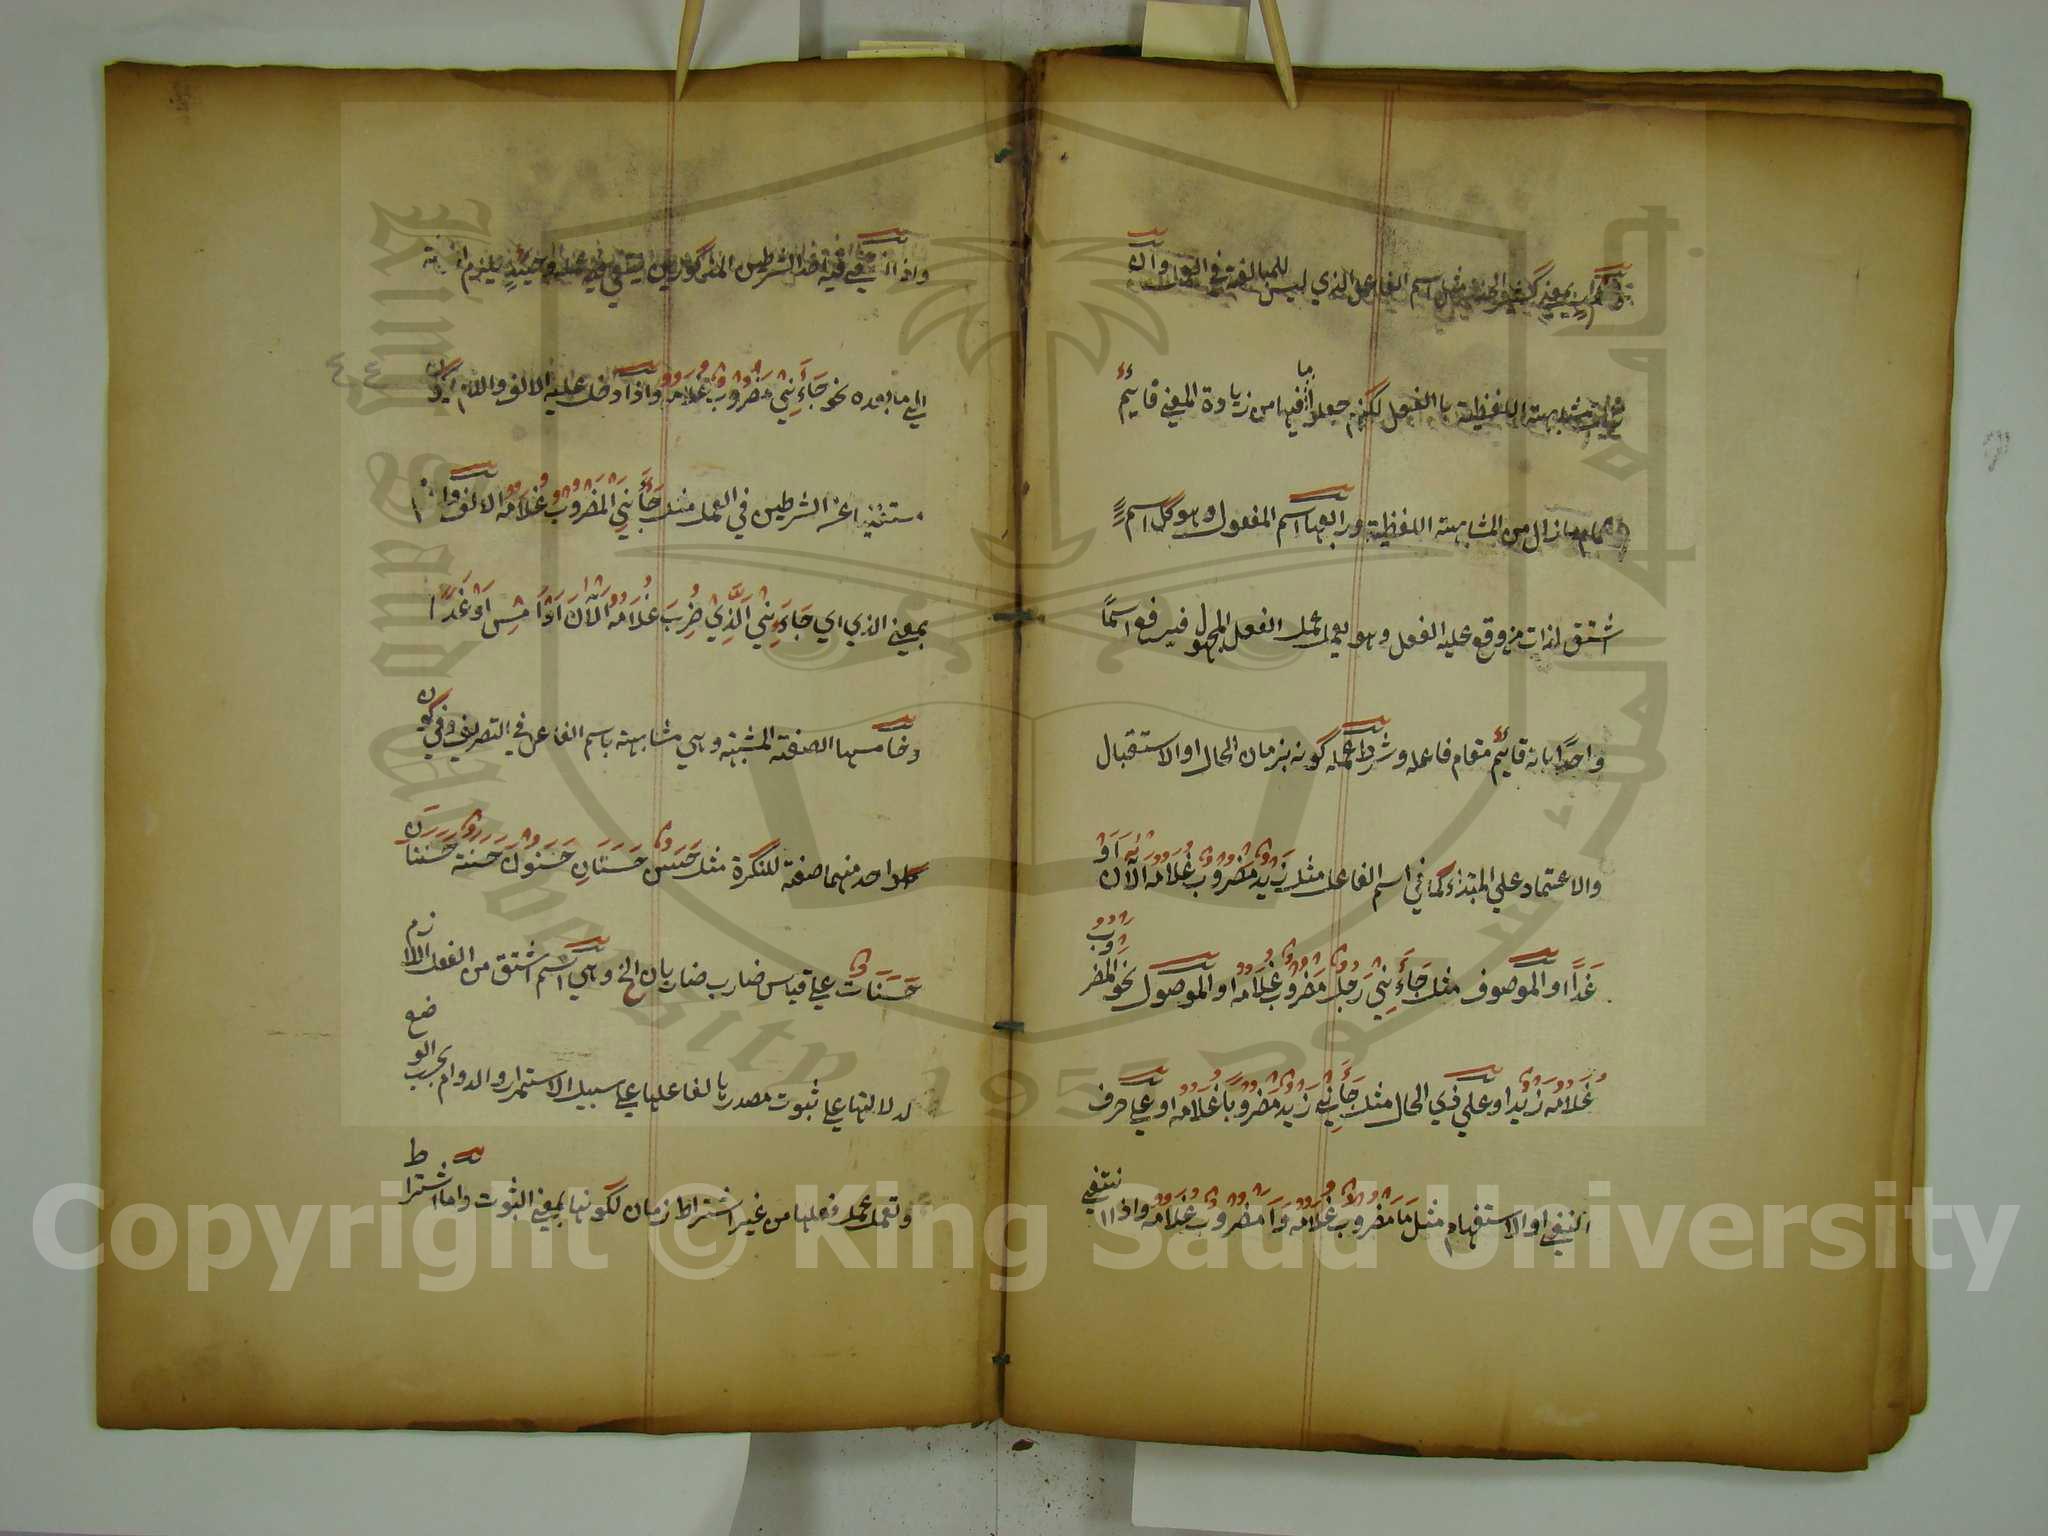 بمعني كثير الحذر مثل اسم الفاعل الذي ليس للمبالغة في العمل وان
المشابهة اللفظية باالفعل لكنهم جعلوا ما فيها من زيادة المعني قائم
مقام ما زال من المشابهة اللفظية ورابعها اسم المفعول وهو كل اسم
اشتق لذات من وقع عليه الفعل وهو يعمل عمل الفعل المجهول فيرفع اسمًا
واحدًا بانه قائم مقام فاعله وشرط عمله كونه بزمان الحال او الاستقبال
والاعتماد علي المبتداء كما في اسم الفاعل مثل زَيْدٌ مَضْرُوبٌ غُلَامُهُ اَلْآنَ اَوْ
غَدًا او الموصوف مثل جَاءَنِيْ رَجُلٌ مَضْرُوبٌ غُلَامُهُ او الموصول نحو المضروب
غُلَامُهُ زَيْدٌ او علي ذي الحال مثل جَاءَنِيْ زَيْدٌ مَضْرُوبًا غُلَامُهُ او علي حرف
النفي او الاستفهام مثل مَا مَضْرُوبٌ غُلَامُهُ وَاَمَضْرُوبٌ غُلَامُهُ واذا انتفي
واذا انتفي فيه احد الشرطين المذكورين ينتفي عمله وحينئذٍ يلزم اضافته
الي ما بعده نحو جَاءَنِيْ مَضْرُوبُ غُلَامِهِ واذا دخل عليه الالف واللام يكون
مستثنيا عن الشرطين في العمل مثل جَاءَنِي الْمَضْرُوبُ غُلَامُهُ الالف واللام
بمعني الذي اي جَاءَنِيْ الَّذِيْ ضُرِبَ غُلَامُهُ الْآنَ اَوْ اَمْسِ اَوْ غَدًا
وخامسها الصفة المشبهة وهي مشابهة باسم الفاعل في التصريف وفي كون
كل واحد منهما صفة للنكرة مثل حَسَنٌ حَسَنَانِ حَسَنُوْنَ حَسَنَةٌ حَسَنَتَانِ
حَسَنَاتٌ علي قياس ضارب ضاربان الخ وهي اسم اشتق من الفعل اللازم
لدلالتها علي ثبوت مصدرها لفاعلها علي سبيل الاستمرار والدوام بحسب الوضع
وتعمل عمل فعلها من غير اشتراط زمان لكونها بمعني الثبوت واما اشتراط
٤٤
Copyright © King Saud University
King Saud University
1957
جامعة الملك سعود